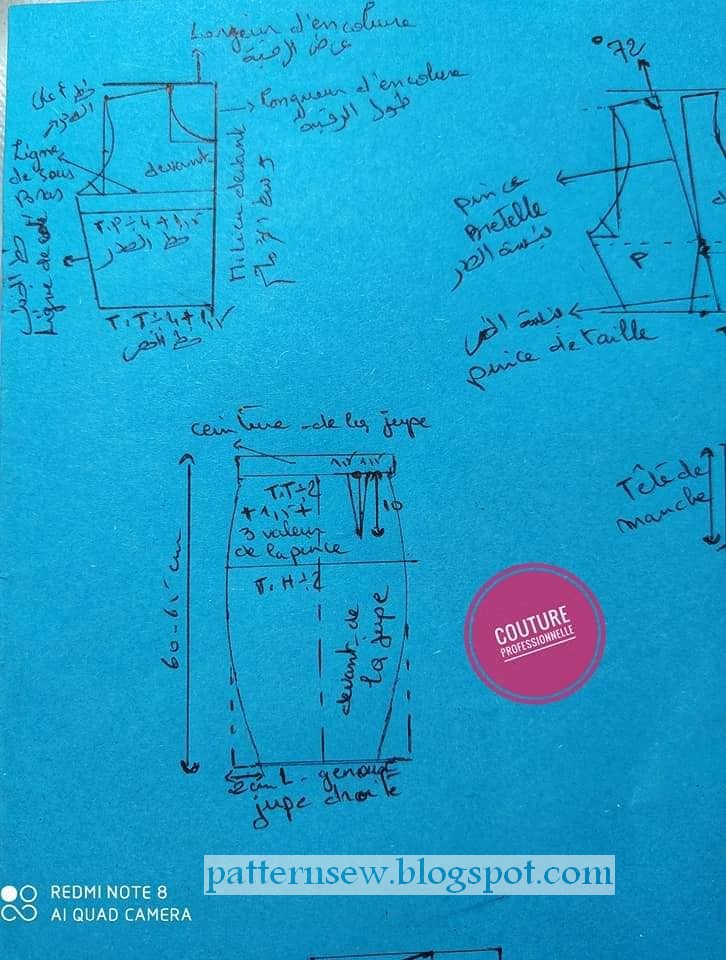 Largeur d'encolure
عرض الرقبة
Longueur d'encolure
طول الرقبة
Ligne
de sous
Bras
devant
Milieu devant
T.P÷4+1,5
خط الصدر
Ligne de coté
T.T÷4+1,5
خط الخصر
°72
pince
Bretelle
بنسة الصدر
P
بنسة الخصر
pince de taille
ceinture de la jupe
1,5 1,5
T.T÷2
+1,5+
3 valeur
de la pince
10
T.H÷2
60-65 cm
devant de
la jupe
2cm L. genoux
jupe droite
Tête de
manche
COUTURE
PROFESSIONNELLE
patternsew.blogspot.com
REDMI NOTE 8
AI QUAD CAMERA